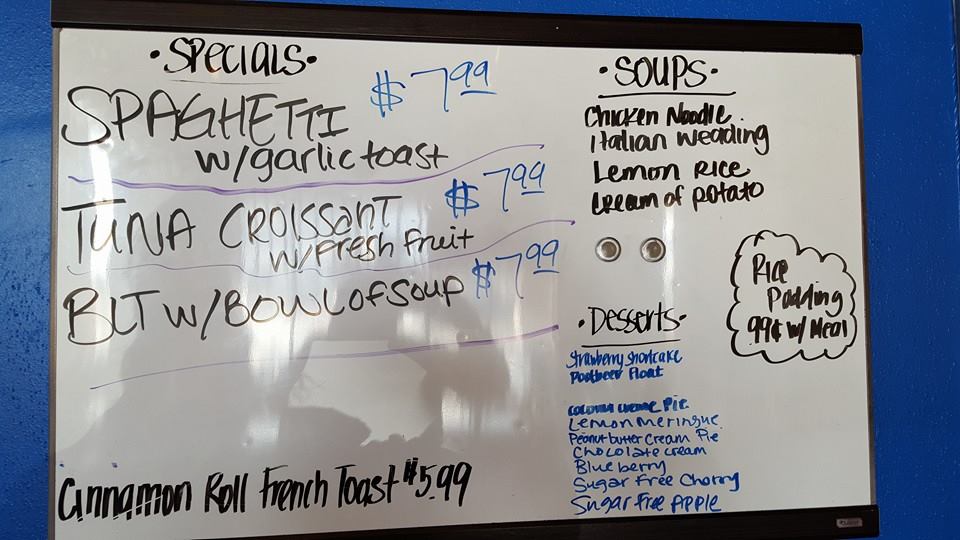 ·SPECIALS·
SPAGHETTI $7.99
w/garlic toast
TUNA CROISSANT $7.99
w/Fresh Fruit
BLT w/BOWL of SOUP $7.99
Cinnamon Roll French Toast $5.99
·SOUPS·
Chicken Noodle
Italian Weading
Lemon Rice
Cream of Potato
Rice
Pudding
99¢ w/ Meal
·Desserts·
Strawberry Shortcake
Rootbeer Float
Coconut Creme Pie
Lemon Meringue
Peanut butter Cream Pie
Chocolate cream
Blueberry
Sugar Free Cherry
Sugar Free Apple